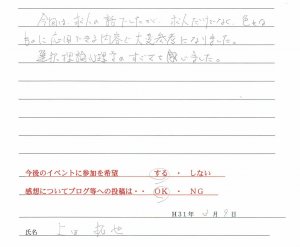 今回は求人の話でしたが、求人だけでなく、色々な
ものに応用できる内容で大変参考になりました。
選択理論心理学のすごさを感じました。
今後のイベントに参加を希望 する ・ しない
感想についてブログ等への投稿は・・ OK ・ NG
H31年 3月 9日
氏名